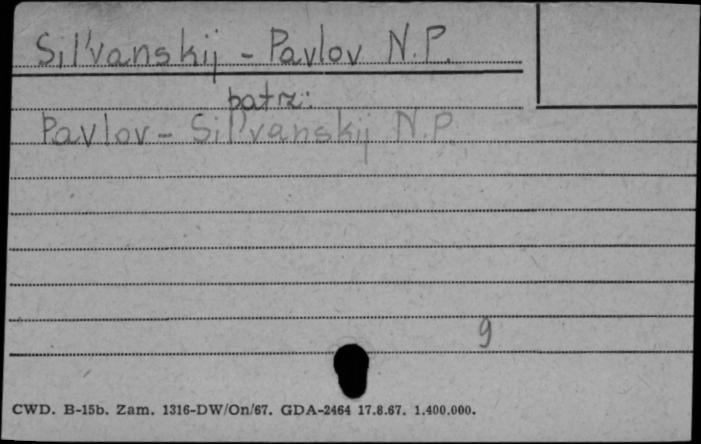 Sil'vanskij - Pavlov N.P.
patrz:
Pavlov - Sil'vanskij N.P.
9
CWD. B-15b. Zam. 1316-DW/On/67. GDA-2464 17.8.67. 1.400.000.